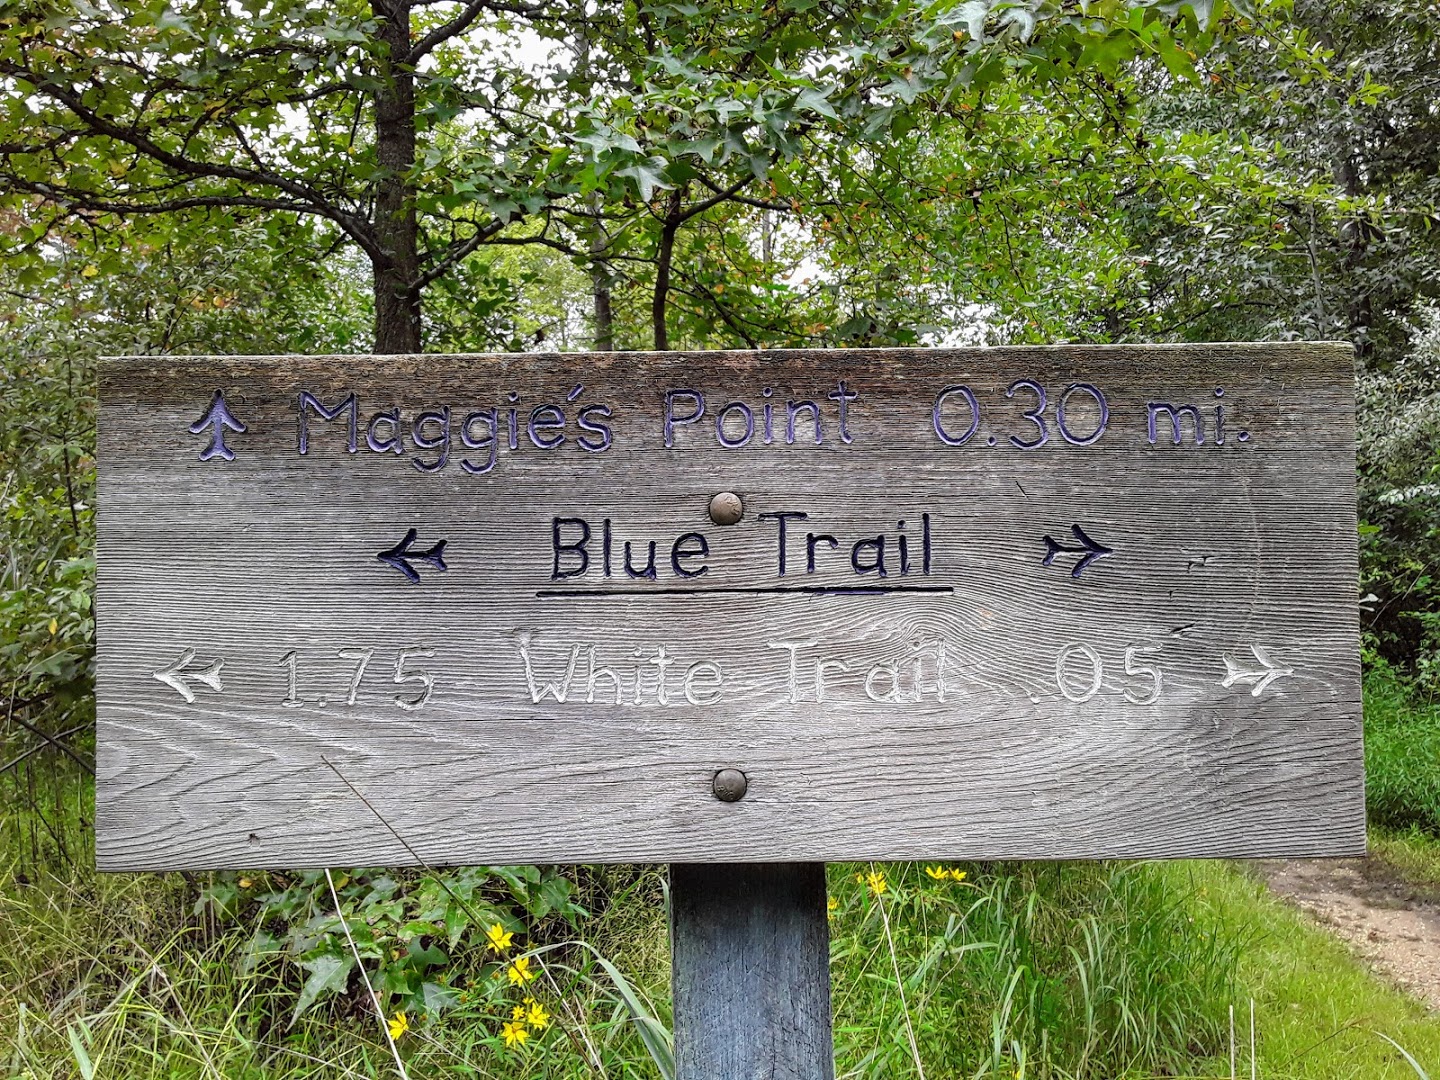 ↑ Maggie's Point 0.30 mi.
← Blue Trail →
← 1.75 White Trail .05 →